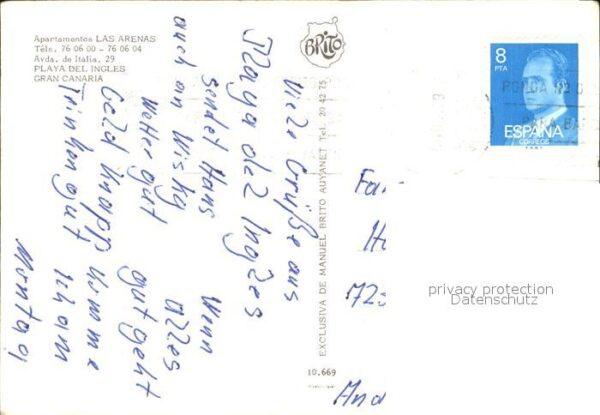 Apartamentos LAS ARENAS
Téls. 76 06 00 - 76 06 04
Avda. de Italia, 29
PLAYA DEL INGLES
GRAN CANARIA
BRITO
8
PTA
ESPAÑA
CORREOS
EXCLUSIVA DE MANUEL BRITO AUYANET Tel. 20 42 75
10.669
Viele Grüße aus
Playa del Ingles
sendet Hans
auch an Wisky
Wetter gut
Geld knapp
Trinken gut
Wenn
alles
gut geht
komme
ich am
Montag
Fa
H
72
And
privacy protection
Datenschutz